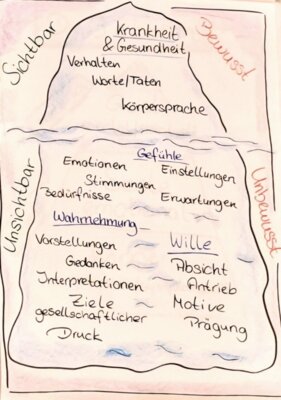 Sichtbar
Bewusst
Krankheit
& Gesundheit
Verhalten
Worte/Taten
Körpersprache
Unsichtbar
Unbewusst
Gefühle
Emotionen
Einstellungen
Stimmungen
Bedürfnisse
Erwartungen
Wahrnehmung
Vorstellungen
Gedanken
Interpretationen
Ziele
gesellschaftlicher
Druck
Wille
Absicht
Antrieb
Motive
Prägung